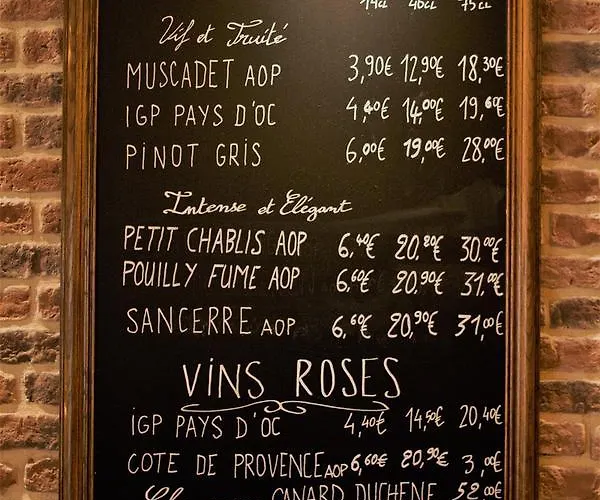 14cl 46cl 75cl
Vif et Fruité
MUSCADET AOP 3,90€ 12,90€ 18,30€
IGP PAYS D'OC 4,40€ 14,00€ 19,60€
PINOT GRIS 6,00€ 19,00€ 28,00€
Intense et Elégant
PETIT CHABLIS AOP 6,40€ 20,20€ 30,00€
POUILLY FUME AOP 6,60€ 20,90€ 31,00€
SANCERRE AOP 6,60€ 20,90€ 31,00€
VINS ROSES
IGP PAYS D'OC 4,40€ 14,50€ 20,40€
COTE DE PROVENCE AOP 6,60€ 20,90€ 3,00€
CANARD DUCHENE 52,00€